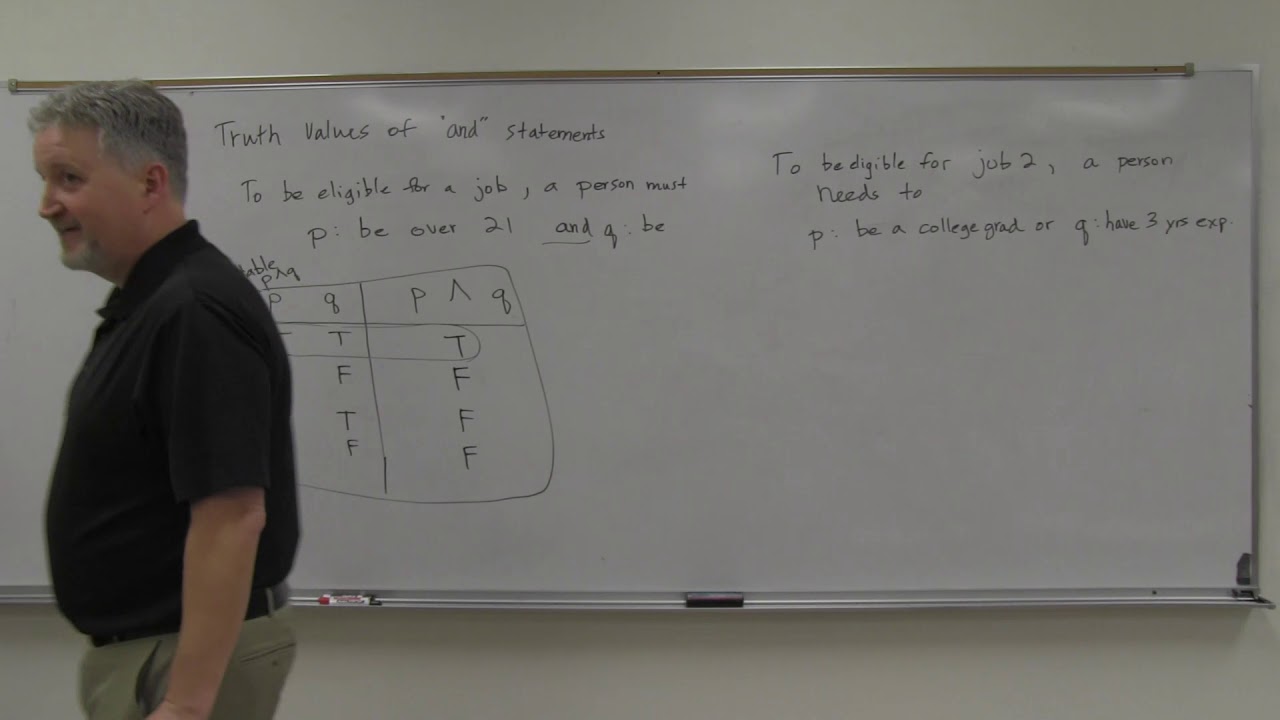 Truth Values of "and" statements
To be eligible for a job, a person must
p: be over 21 and q: be
table
p∧q
p q p ∧ q
T T
F F
T F
F F
To be eligible for job 2, a person
needs to
p: be a college grad or q: have 3 yrs exp.